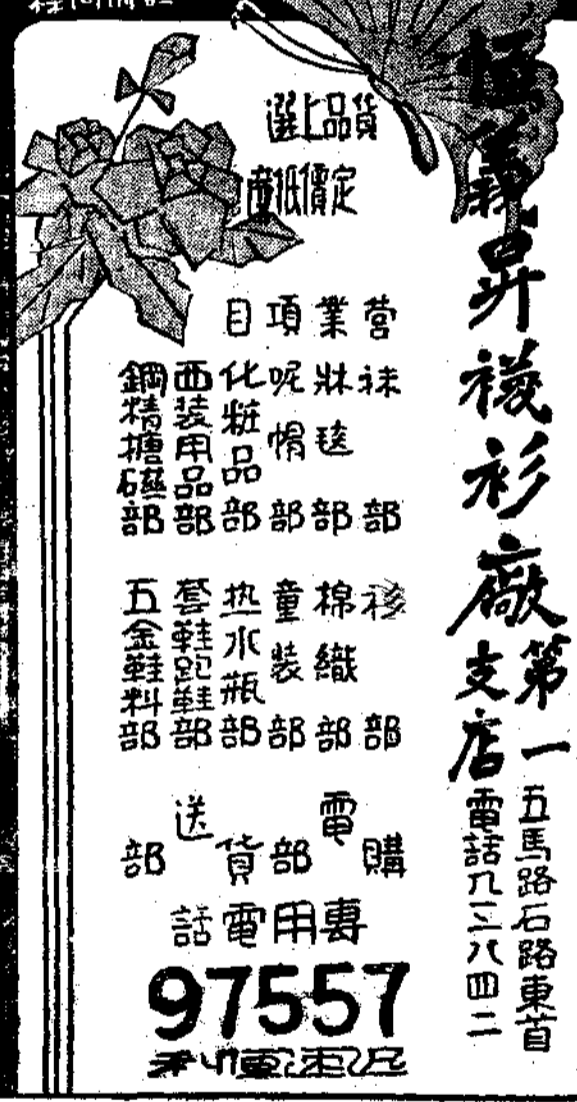 義昇襪衫廠
第一支店
五馬路石路東首
電話九三八四二
貨品上選
定價低廉
營業項目
袜部
牀毯部
呢帽部
化粧品部
西装用品部
鋼精搪磁部
衫部
棉織部
童裝部
热水瓶部
套鞋跑鞋部
五金鞋料部
電購部
送貨部
專用電話
97557